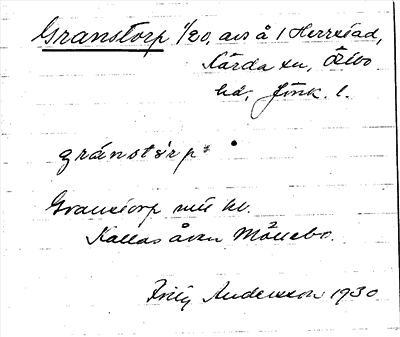 Granstorp 1/20, avs å 1 Herrestad,
Kärda sn, Östbo
hd, Jönk. l.
gránstòrp
Granstorp nu kl.
Kallas även Månsbo.
Andersson 1930